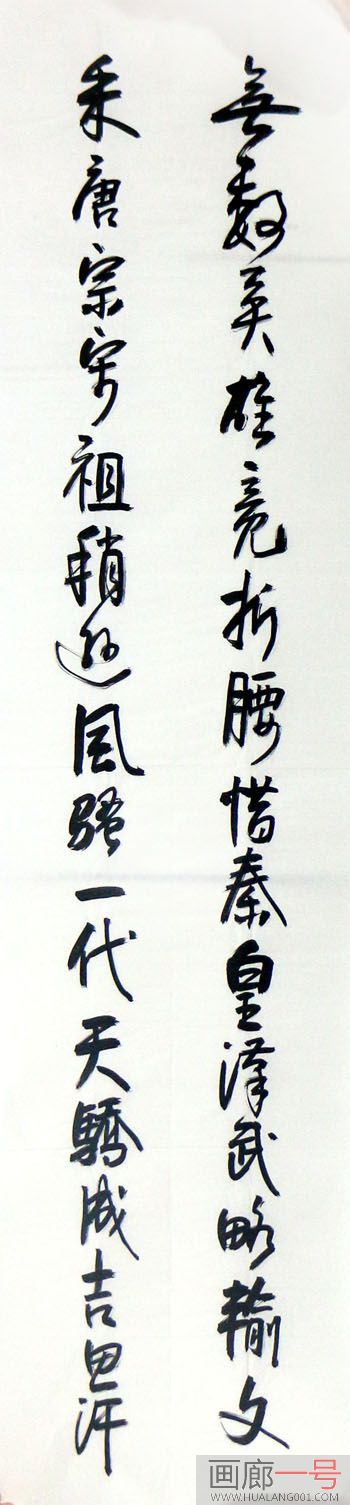 無数英雄竞折腰惜秦皇漢武略輸文
采唐宗宋祖稍逊風骚一代天驕成吉思汗
画廊一号
WWW.HUALANG001.COM